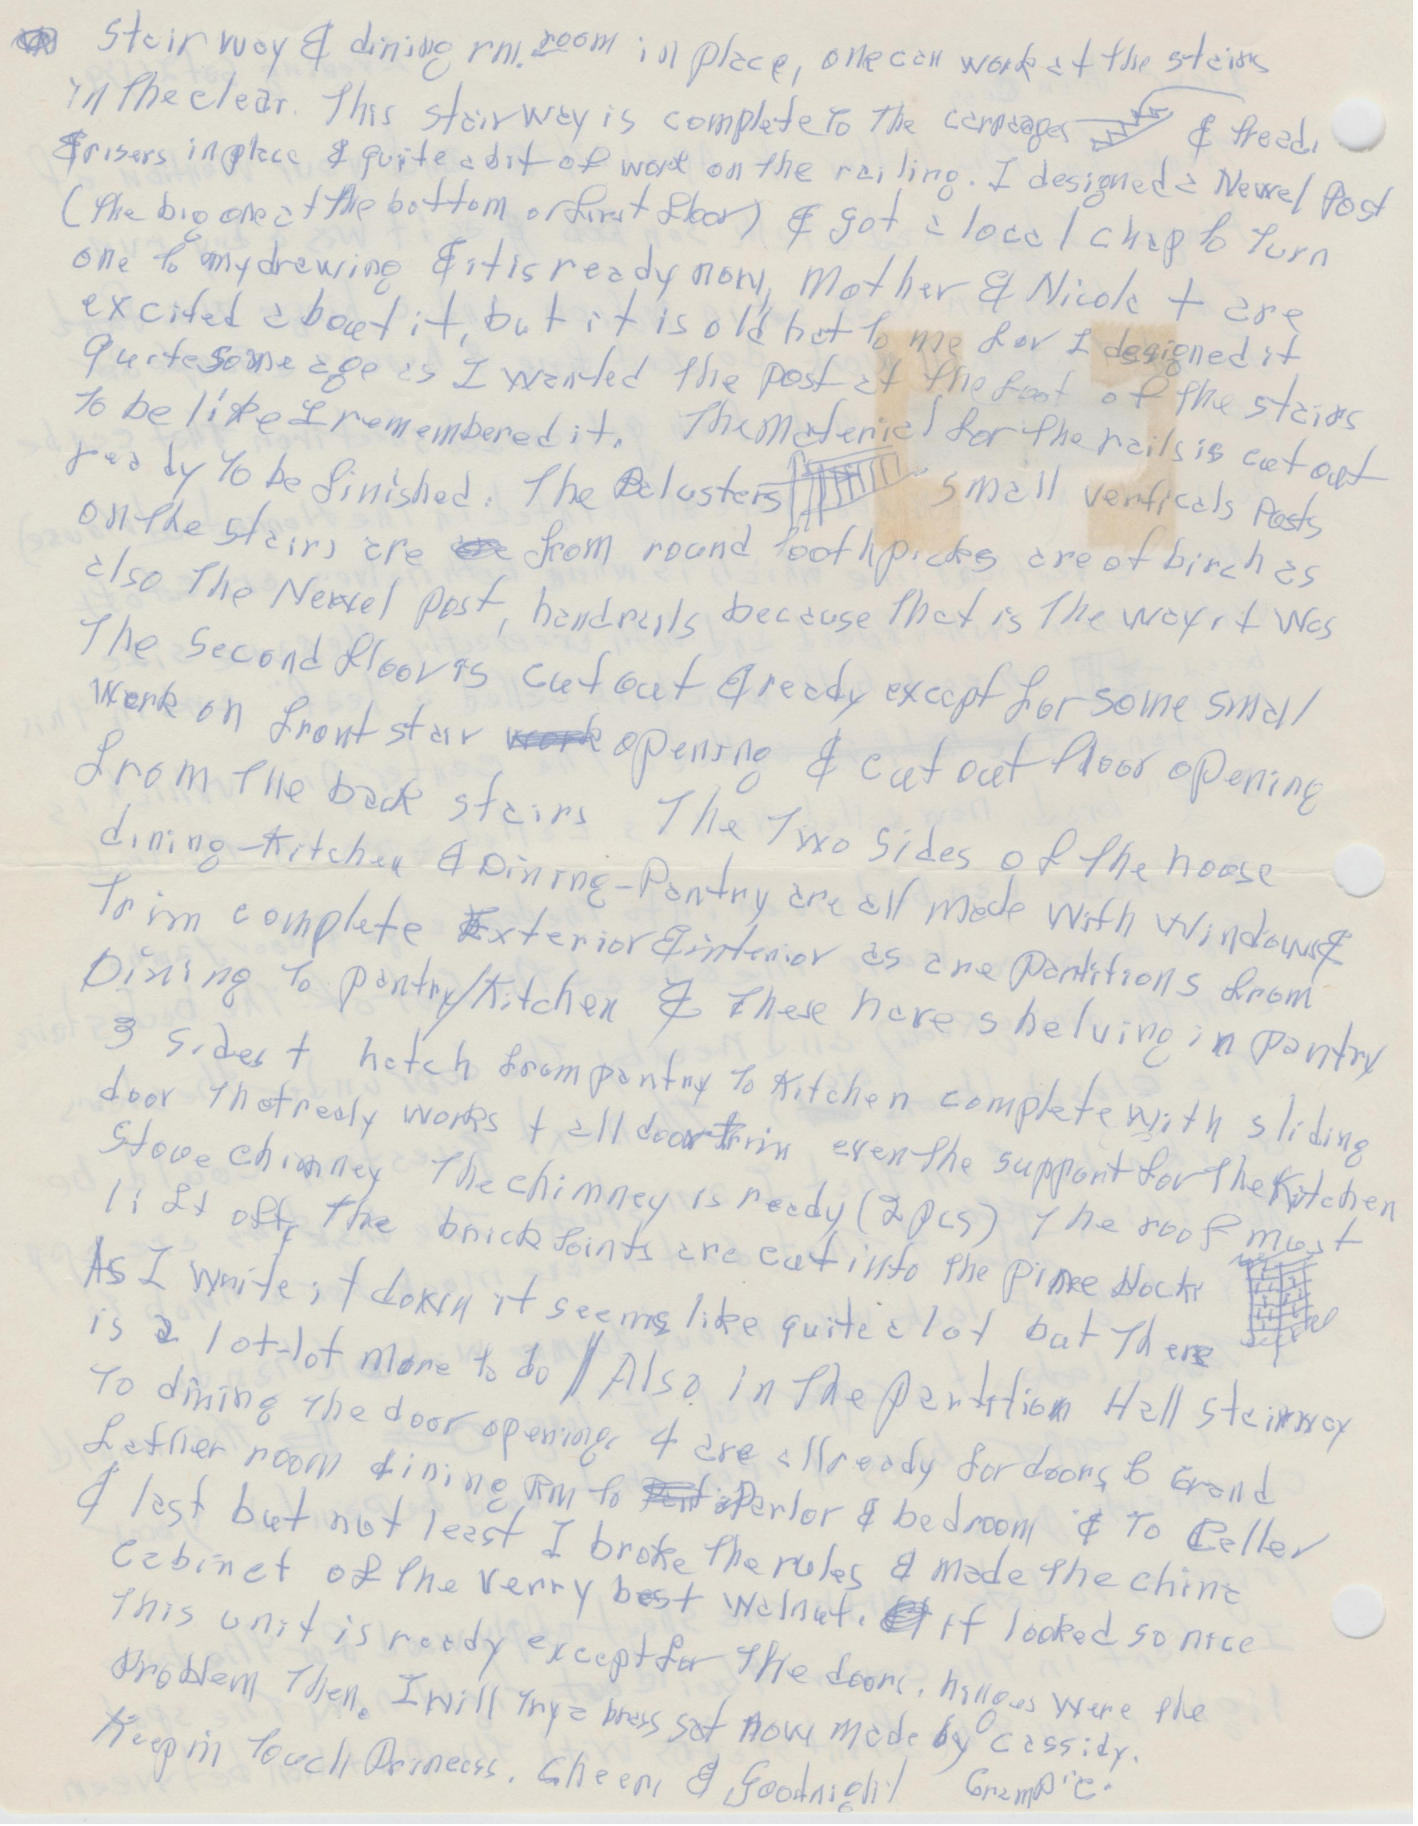 Stairway & dining rm. room in place, one can work at the stairs
in the clear. This stairway is complete to the carraages & tread,
& risers in place & quite a bit of work on the railing. I designed a Newel Post
(the big one at the bottom or first floor) & got a local chap to turn
one to my drawing & it is ready now, Mother & Nicole t are
excited about it, but it is old hat to me for I designed it
quite some age as I wanted the post at the foot of the stairs
to be like I remembered it. The material for the rails is cut out
ready to be finished. The Balusters small verticals posts
on the stairs are from round toothpicks are of birch as
also the Newel post, handrails because that is the way it was
The second floor is cut out & ready except for some small
work on front stair opening & cut out floor opening
from the back stairs The Two sides of the house
dining-Kitchen & Dining-Pantry are all made with windows &
Trim complete Exterior & interior as are partitions from
Dining to pantry/Kitchen & these have shelving in pantry
3 sides + hatch from pantry to Kitchen complete with sliding
door that realy works + all door trim even the support for the Kitchen
Stove chimney The chimney is ready (2 pcs) the roof must
lift off, The brick joints are cut into the pine blocks
As I write it down it seems like quite a lot but there
is a lot-lot more to do // Also in the partition Hall stairway
to dining the door opening 4 are all ready for doors, to Grand
father room dining rm to Parlor & bedroom & to Celler
& last but not least I broke the rules & made the china
cabinet of the verry best walnut. it looked so nice
This unit is ready except for the doors. hinges were the
problem then. I will try a brass set now made by Cassidy.
Keep in touch Princess. Cheers & Goodnight Grampie.